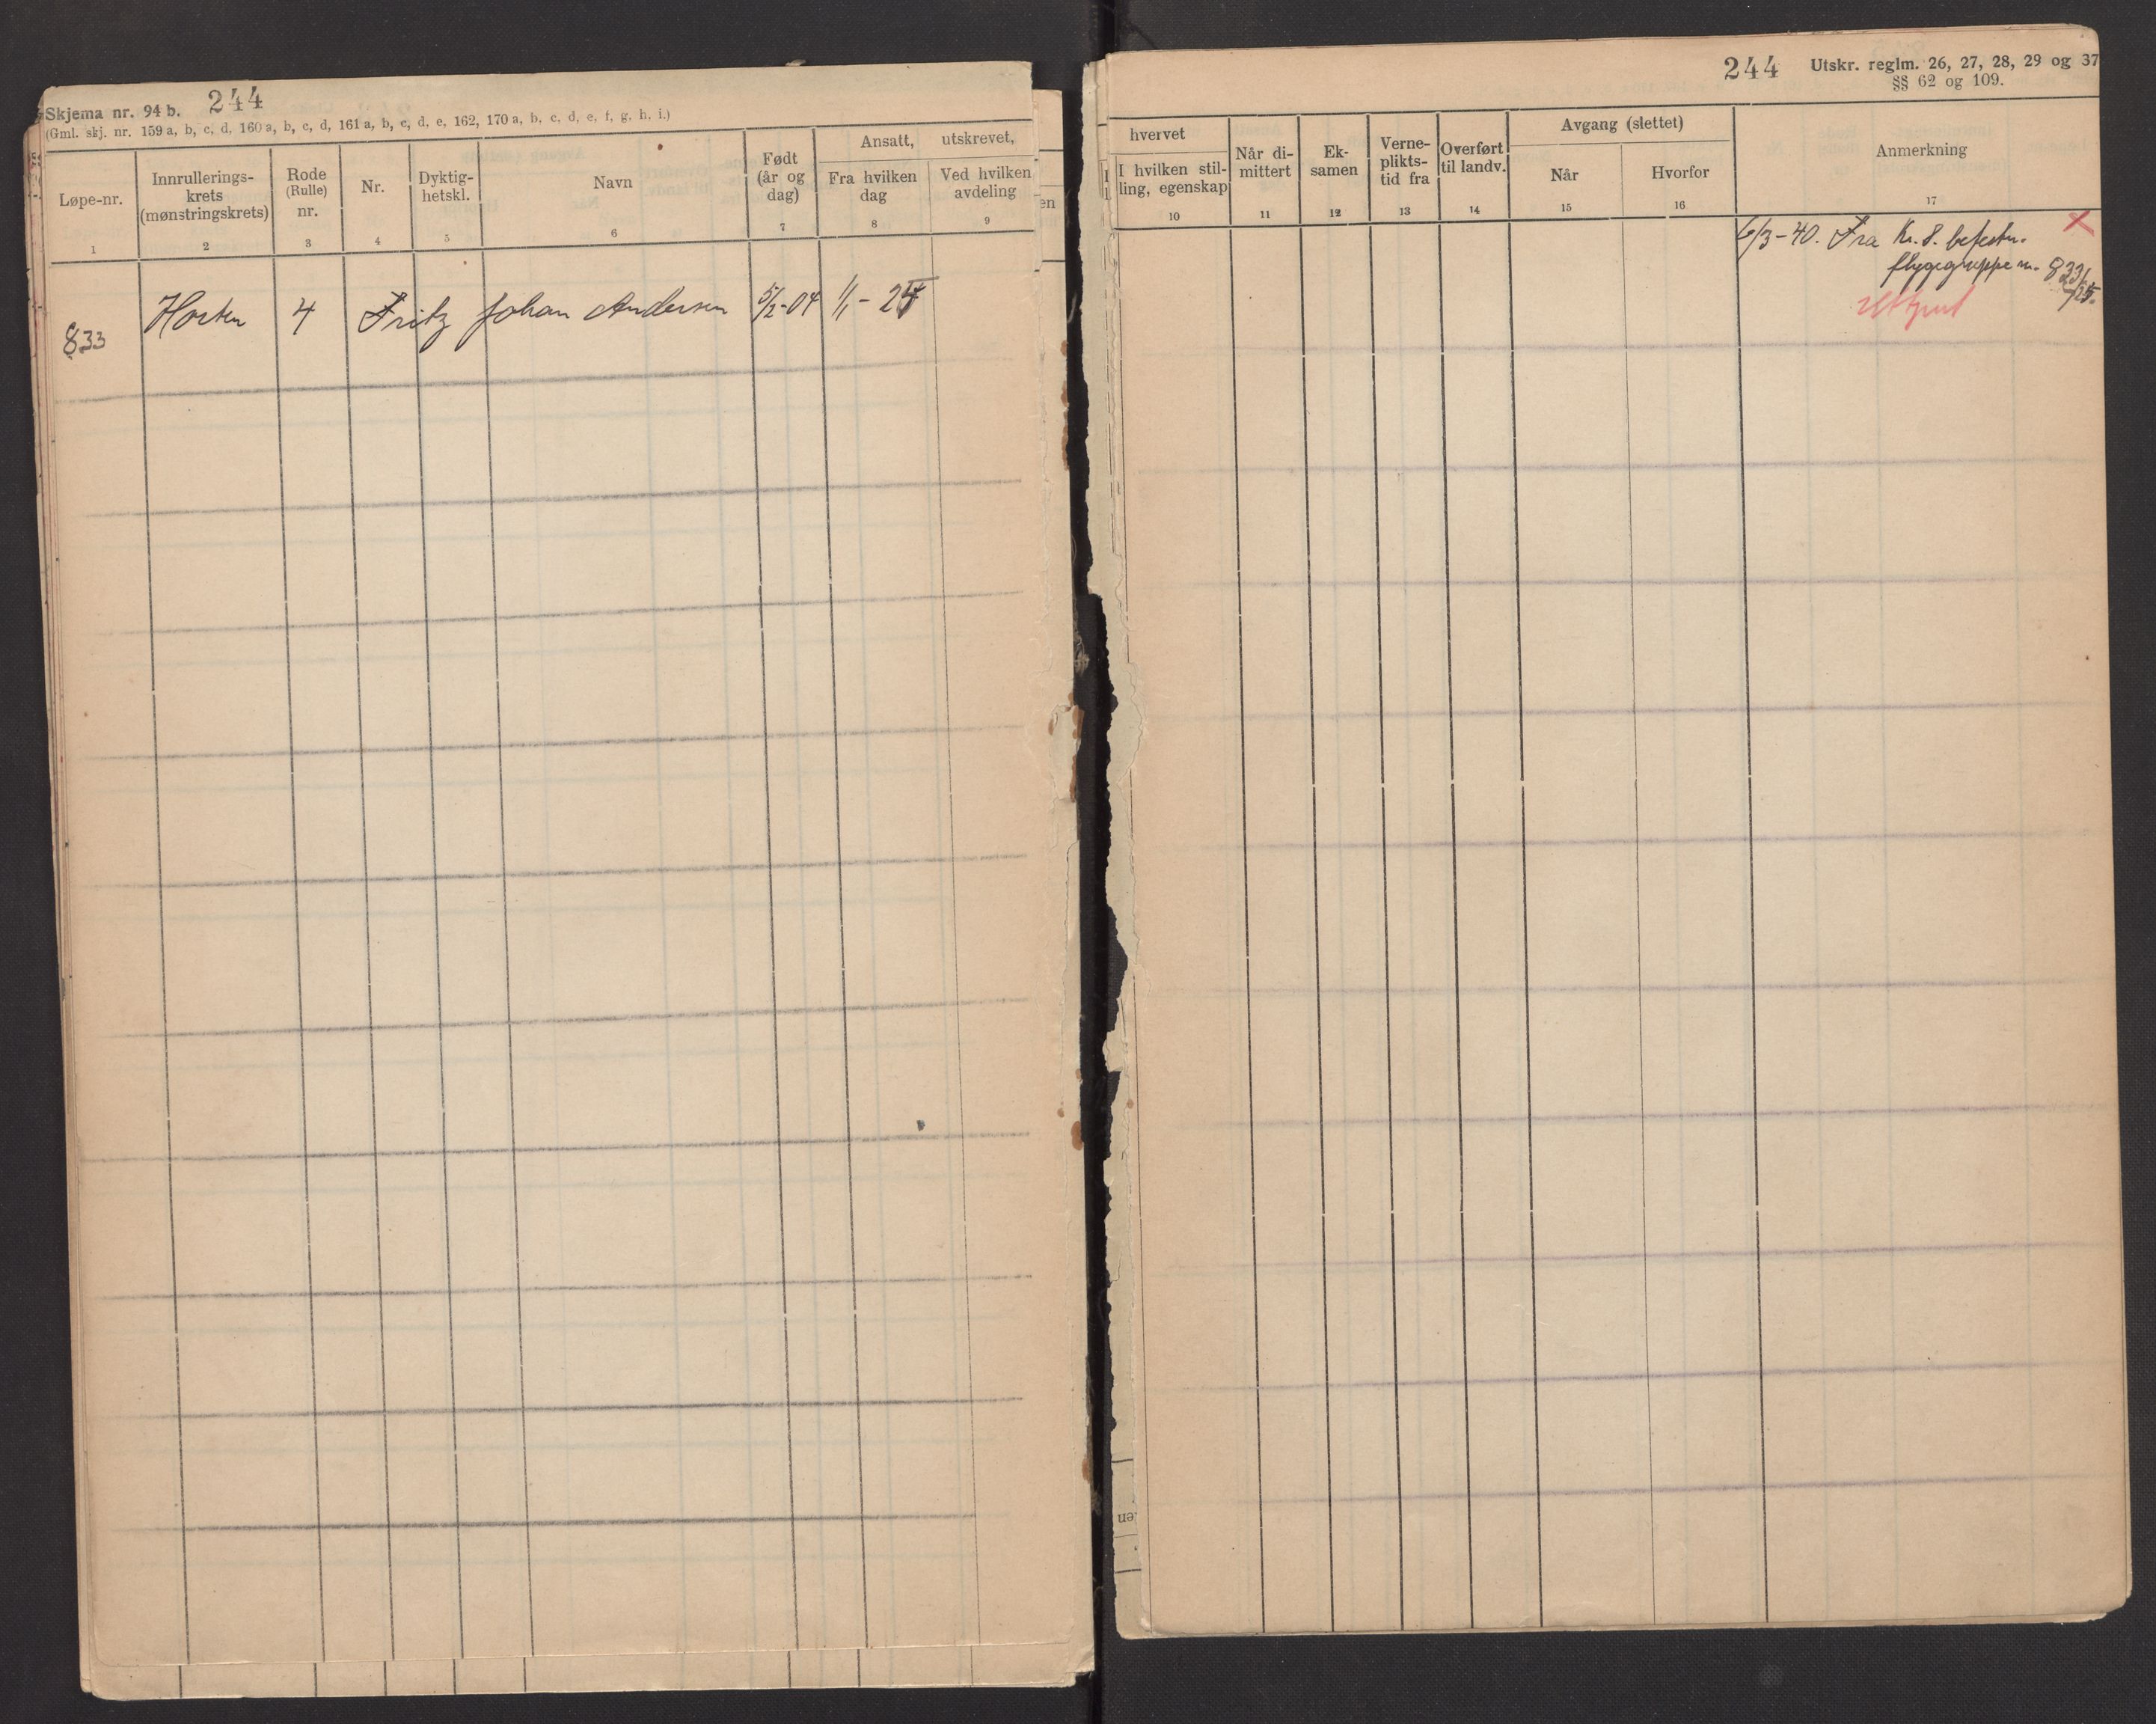 Skjema nr. 94 b. 244
(Gml. skj. nr. 159 a, b, c, d, 160 a, b, c, d, 161 a, b, c, d, e, 162, 170 a, b, c, d, e, f, g, h, i.)
Løpe-nr.
Innrullerings-
krets
(mønstringskrets)
Rode
(Rulle)
nr.
Nr.
Dyktig-
hetskl.
Navn
Født
(år og
dag)
Ansatt, utskrevet,
Fra hvilken
dag
Ved hvilken
avdeling
1 2 3 4 5 6 7 8 9
833 Horten 4 Fritz Johan Andersen 5/2-04 1/1-25
en
244 Utskr. reglm. 26, 27, 28, 29 og 37
§§ 62 og 109.
hvervet
I hvilken stil-
ling, egenskap
Når di-
mittert
Ek-
samen
Verne-
plikts-
tid fra
Overført
til landv.
Avgang (slettet)
Når
Hvorfor
Anmerkning
10 11 12 13 14 15 16 17
6/3-40. Fra Kr. S. befestn. X
flygegruppe nr. 833/
/25.